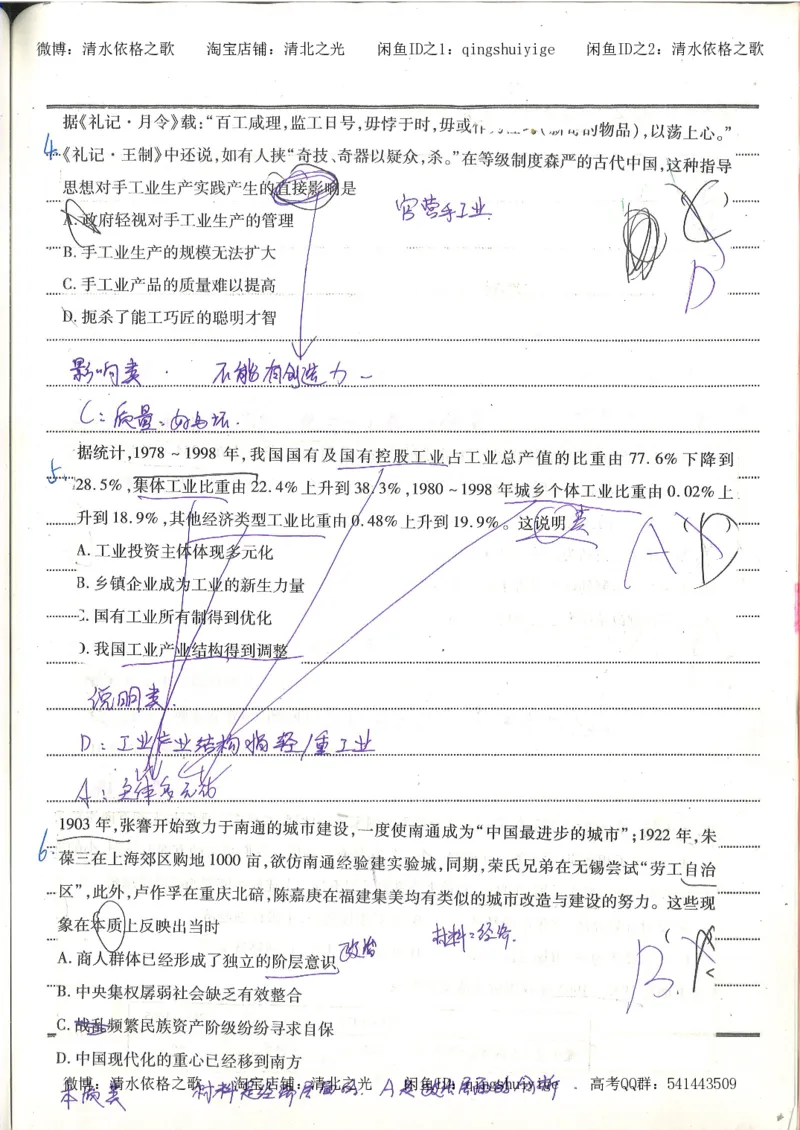 微博：清水依格之歌 淘宝店铺：清北之光 闲鱼ID之1：qingshuiyige 闲鱼ID之2：清水依格之歌
据《礼记·月令》载：“百工咸理，监工日号，毋悖于时，毋或作 的物品），以荡上心。”
4. 《礼记·王制》中还说，如有人挟“奇技、奇器以疑众，杀。”在等级制度森严的古代中国，这种指导
思想对手工业生产实践产生的直接影响是
官营手工业
A. 政府轻视对手工业生产的管理
B. 手工业生产的规模无法扩大
C. 手工业产品的质量难以提高
D
D. 扼杀了能工巧匠的聪明才智
影响类 不能有创造力
C：质量：好与坏.
据统计，1978～1998 年，我国国有及国有控股工业占工业总产值的比重由 77.6% 下降到
5. 28.5%，集体工业比重由 22.4% 上升到 38.3%，1980～1998 年城乡个体工业比重由 0.02% 上
升到 18.9%，其他经济类型工业比重由 0.48% 上升到 19.9%。这说明 类
A (D)
A. 工业投资主体体现多元化
B. 乡镇企业成为工业的新生力量
C. 国有工业所有制得到优化
D. 我国工业产业结构得到调整
说明类
D：工业产业结构指轻/重工业
A：主体多元化
1903 年，张謇开始致力于南通的城市建设，一度使南通成为“中国最进步的城市”；1922 年，朱
6. 葆三在上海郊区购地 1000 亩，欲仿南通经验建实验城，同期，荣氏兄弟在无锡尝试“劳工自治
区”，此外，卢作孚在重庆北碚，陈嘉庚在福建集美均有类似的城市改造与建设的努力。这些现
象在本质上反映出当时
材料：经济.
A. 商人群体已经形成了独立的阶层意识 政治
B.
B. 中央集权孱弱社会缺乏有效整合
C. 战乱频繁民族资产阶级纷纷寻求自保
D. 中国现代化的重心已经移到南方
微博：清水依格之歌 淘宝店铺：清北之光 闲鱼ID：qingshuiyige 高考QQ群：541443509
本质类 材料是经济层面的. A是政治层面的